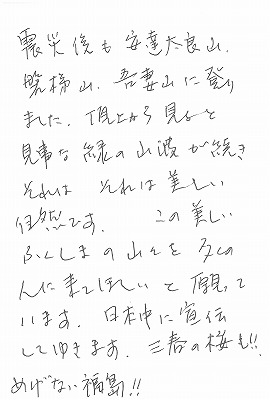 震災後も安達太良山、
磐梯山、吾妻山に登り
ました。頂上から見ると
見事な緑の山波が続き
それは それは美しい
自然です。 この美しい
ふくしまの山々を多くの
人に来てほしいと願って
います。日本中に宣伝
してゆきます。三春の桜も!!
めげない福島!!